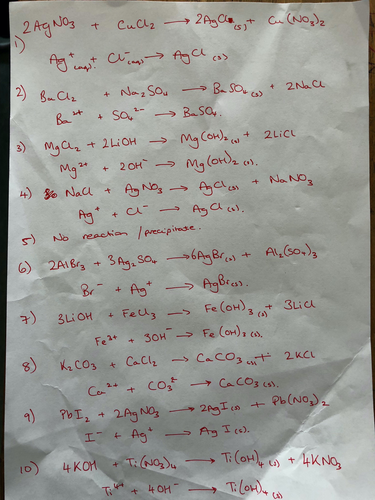 1) 2AgNO₃ + CuCl₂ → 2AgCl(s) + Cu(NO₃)₂
Ag⁺(aq) + Cl⁻(aq) → AgCl(s)
2) BaCl₂ + Na₂SO₄ → BaSO₄(s) + 2NaCl
Ba²⁺ + SO₄²⁻ → BaSO₄.
3) MgCl₂ + 2LiOH → Mg(OH)₂(s) + 2LiCl
Mg²⁺ + 2OH⁻ → Mg(OH)₂(s).
4) NaCl + AgNO₃ → AgCl(s) + NaNO₃
Ag⁺ + Cl⁻ → AgCl(s).
5) No reaction / precipitate.
6) 2AlBr₃ + 3Ag₂SO₄ → 6AgBr(s) + Al₂(SO₄)₃
Br⁻ + Ag⁺ → AgBr(s).
7) 3LiOH + FeCl₃ → Fe(OH)₃(s) + 3LiCl
Fe³⁺ + 3OH⁻ → Fe(OH)₃(s).
8) K₂CO₃ + CaCl₂ → CaCO₃(s) + 2KCl
Ca²⁺ + CO₃²⁻ → CaCO₃(s).
9) PbI₂ + 2AgNO₃ → 2AgI(s) + Pb(NO₃)₂
I⁻ + Ag⁺ → AgI(s).
10) 4KOH + Ti(NO₃)₄ → Ti(OH)₄(s) + 4KNO₃
Ti⁴⁺ + 4OH⁻ → Ti(OH)₄(s)